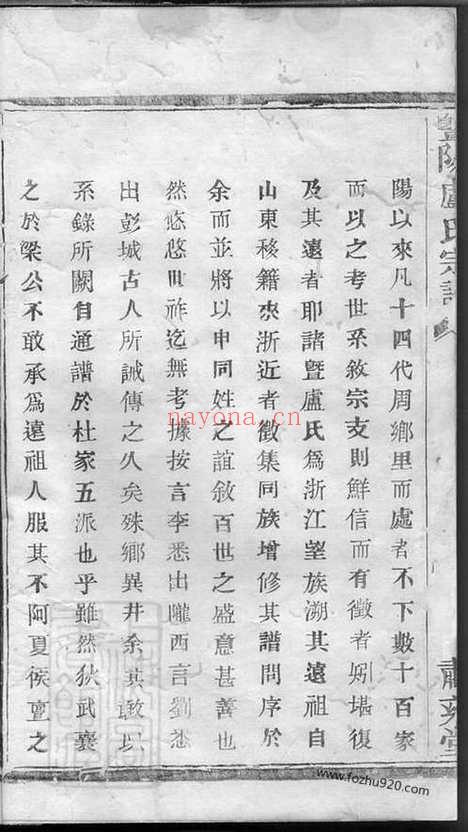 暨陽盧氏宗譜
肅雍堂
陽以來凡十四代周鄉里而處者不下數十百家
而以之考世系敘宗支則鮮信而有徵者矧堪復
及其遠者耶諸暨盧氏爲浙江望族溯其遠祖自
山東移籍來浙近者徵集同族增修其譜問序於
余而並將以申同姓之誼敘百世之盛意甚善也
然悠悠世祚迄無考據按言李悉出隴西言劉悉
出彭城古人所誡傳之久矣殊鄉異井余其敢以
系錄所關自通譜於杜家五派也乎雖然狄武襄
之於梁公不敢承爲遠祖人服其不阿夏侯亶之
nayona.cn
www.fozhu920.com